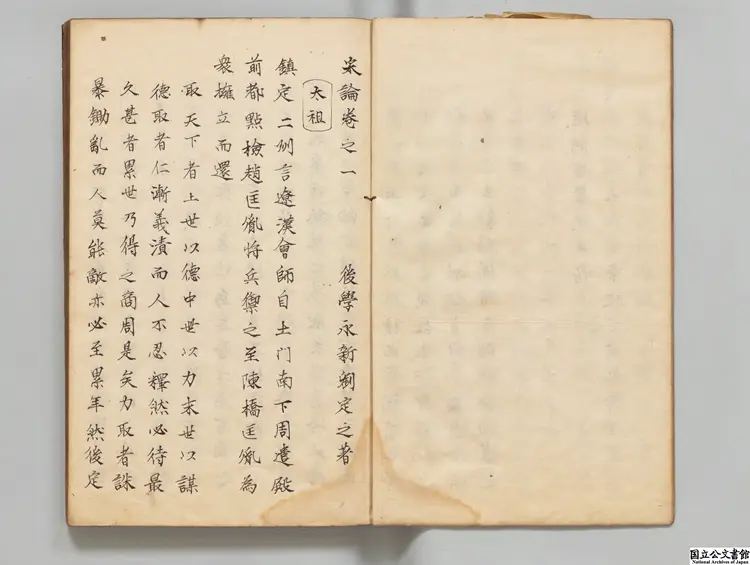 宋論卷之一 後學永新劉定之著
太祖
鎮定二州言遼漢會師自土门南下周遣殿
前都點檢趙匡胤将兵禦之至陳橋匡胤為
衆擁立而還
取天下者上世以德中世以力末世以謀
德取者仁漸義漬而人不忍釋然必待最
久甚者累世乃得之商周是矣力取者誅
暴鋤亂而人莫能敵亦必至累年然後定
国立公文書館
National Archives of Japan